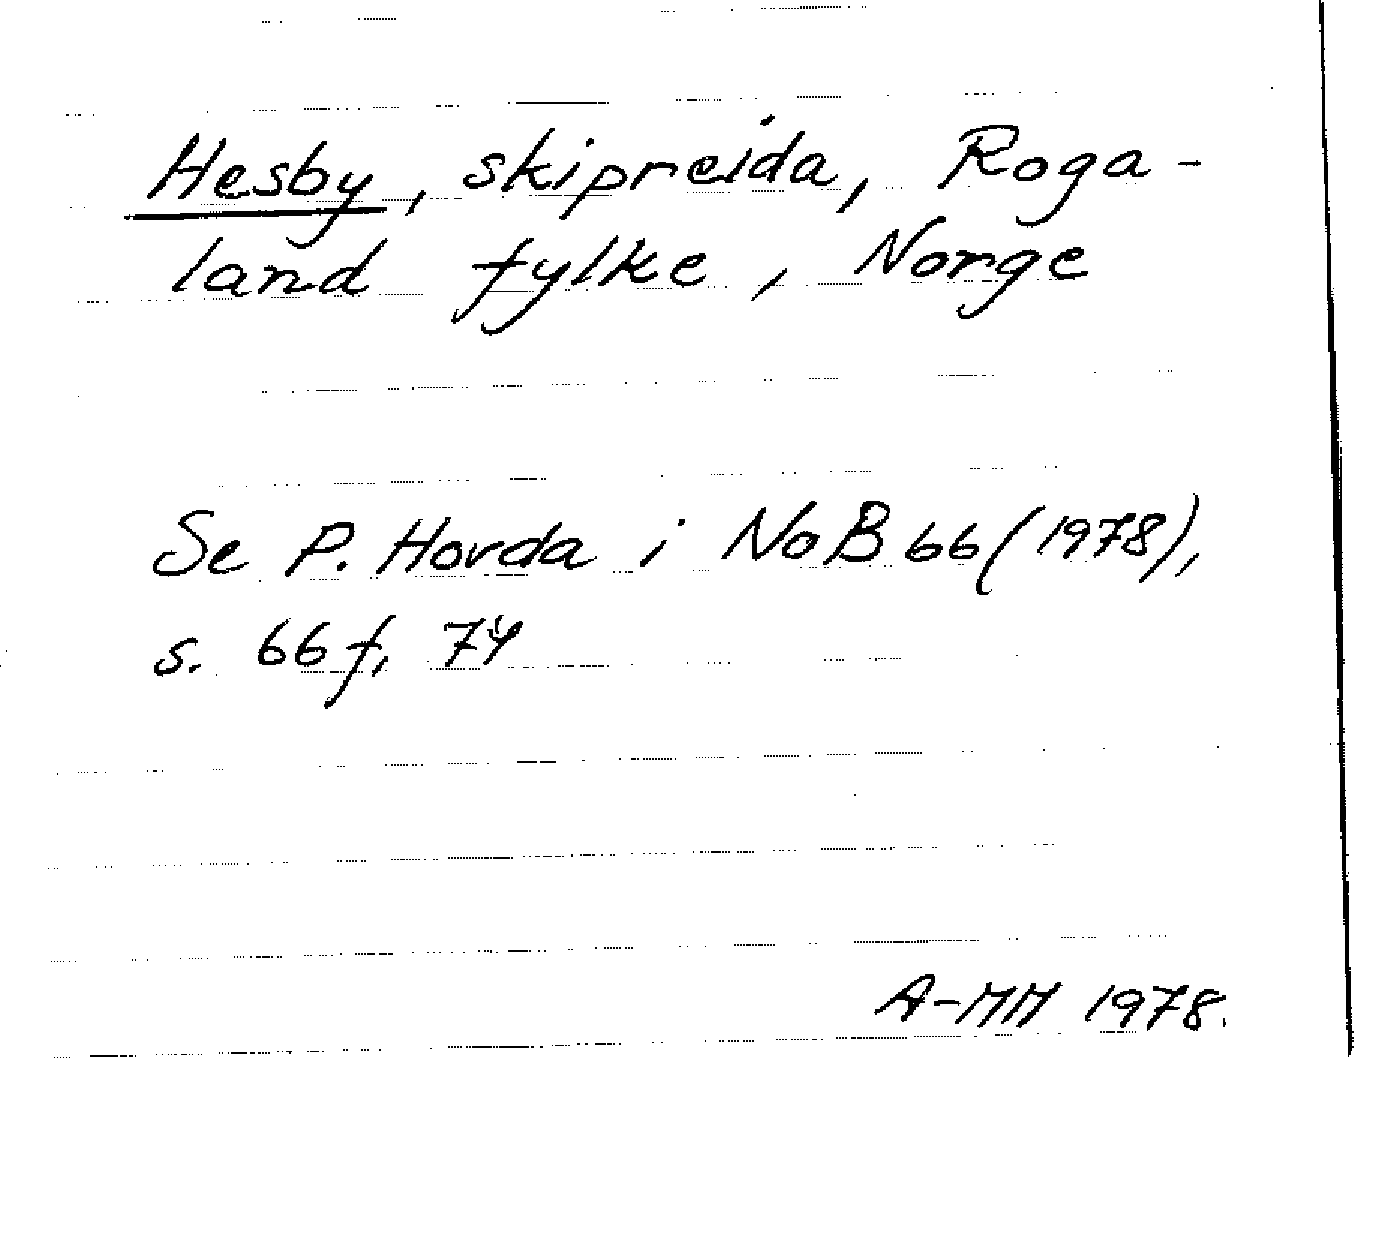 Hesby, skipreida, Roga-
land fylke, Norge
Se P. Hovda i NoB 66 (1978),
s. 66 f, 74
A-MM 1978.